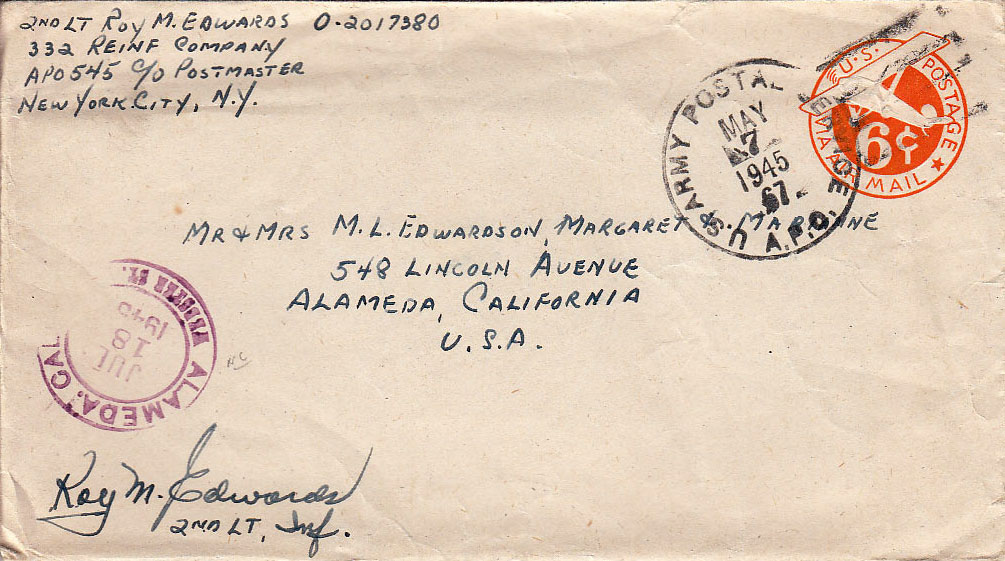 2ND LT ROY M. EDWARDS O-2017380
332 REINF COMPANY
APO 545 C/O POSTMASTER
NEW YORK CITY, N.Y.
U.S. ARMY POSTAL SERVICE A.P.O.
MAY
7
1945
67
U.S. POSTAGE
6¢
VIA AIR MAIL
MR & MRS M.L. EDWARDSON, MARGARET &
548 LINCOLN AVENUE
ALAMEDA, CALIFORNIA
U.S.A.
ALAMEDA, CAL.
JUL
18
1945
Roy M. Edwards
2ND LT, Inf.